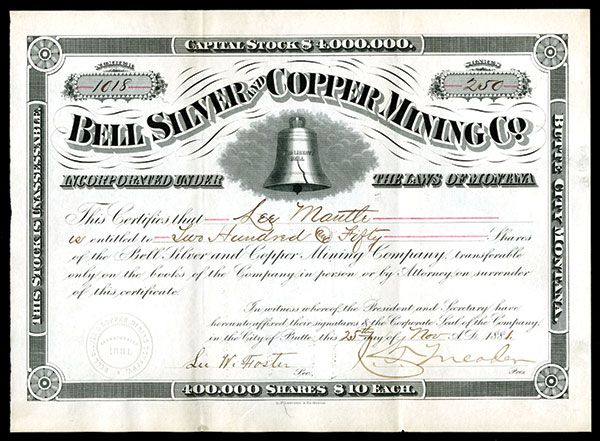 CAPITAL STOCK $4,000,000.
NUMBER
1018
SHARES
250
BELL SILVER AND COPPER MINING CO.
INCORPORATED UNDER THE LAWS OF MONTANA
THIS STOCK IS UNASSESSABLE
BUTTE CITY MONTANA.
This Certifies that Lee Mantle
is entitled to Two Hundred & Fifty Shares
of the Bell Silver and Copper Mining Company, transferable
only on the books of the Company in person or by Attorney on surrender
of this certificate.
In witness whereof the President and Secretary have
hereunto affixed their signatures & the Corporate Seal of the Company,
in the City of Butte, this 25th day of Nov. A.D. 1881.
Lee W. Foster
Sec.
Pres.
400,000 SHARES $10 EACH.